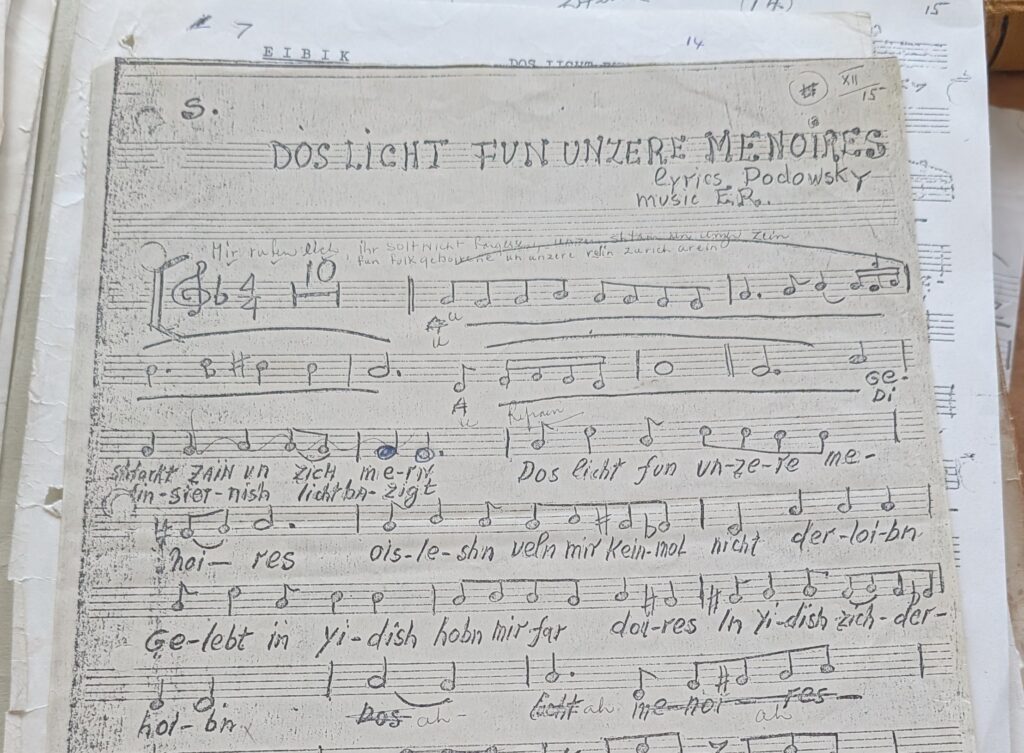 7
15
EIBIK
14
S.
# XII 15
DOS LICHT FUN UNZERE MENOIRES
lyrics Podowsky
music E.R.
Mir rufn dich, ihr solt nicht
fun folk geborene un unzere zurich arein
4 4 10
u
A
u
Ge-
Di
Refrain
shtarkt ZAIN un zich me-rn
in-sier-nish licht bn-zigt
Dos licht fun un-ze-re me-
noi- res ois-le-shn veln mir kein-mol nicht der-loi-bn
Ge-lebt in yi-dish hobn mir far doi-res In yi-dish zich-der-
hoi-bn Dos ah- licht ah me-noi-res ah